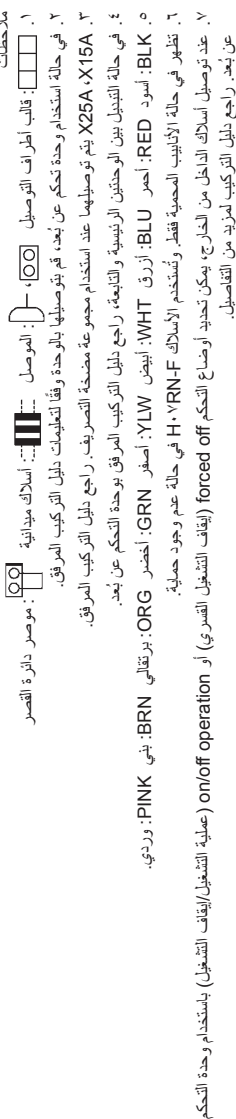 ملاحظات
١. [ ] : قالب أطراف التوصيل ، : الموصل : أسلاك ميدانية : موصر دائرة القصر
٢. في حالة استخدام وحدة تحكم عن بُعد، قم بتوصيلها بالوحدة وفقًا لتعليمات دليل التركيب المرفق.
٣. X25A ،X15A يتم توصيلهما عند استخدام مجموعة مضخة التصريف. راجع دليل التركيب المرفق.
٤. في حالة التبديل بين الوحدتين الرئيسية والتابعة، راجع دليل التركيب المرفق بوحدة التحكم عن بُعد.
٥. BLK: أسود RED: أحمر BLU: أزرق WHT: أبيض YLW: أصفر GRN: أخضر ORG: برتقالي BRN: بني PINK: وردي.
٦. تظهر في حالة الأنابيب المحمية فقط. وتُستخدم الأسلاك H٠٧RN-F في حالة عدم وجود حماية.
٧. عند توصيل أسلاك الداخل من الخارج، يمكن تحديد أوضاع التحكم forced off (إيقاف التشغيل القسري) أو on/off operation (عملية التشغيل/إيقاف التشغيل) باستخدام وحدة التحكم
عن بُعد. راجع دليل التركيب لمزيد من التفاصيل.